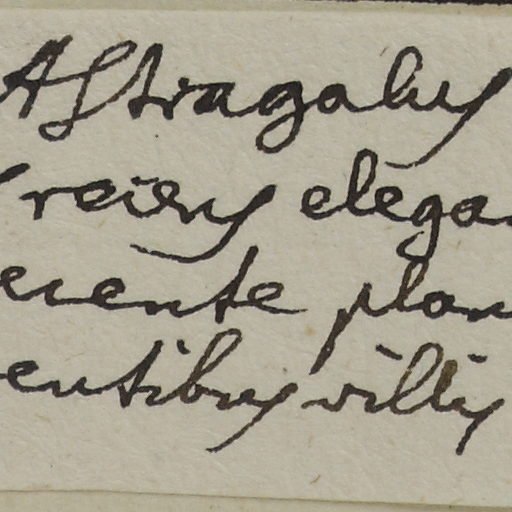 Astragalus
reiens elega
erente plan
entibus villis